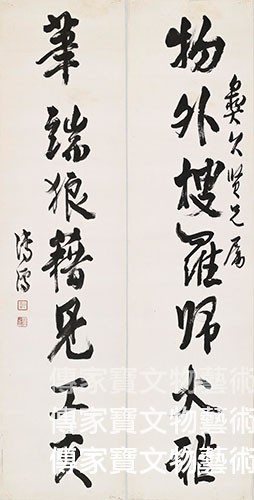 彝久賢兄屬
物外搜羅歸大雅
筆端狼藉見工夫
溥儒
傳家寶文物藝術
傳家寶文物藝術
傳家寶文物藝術